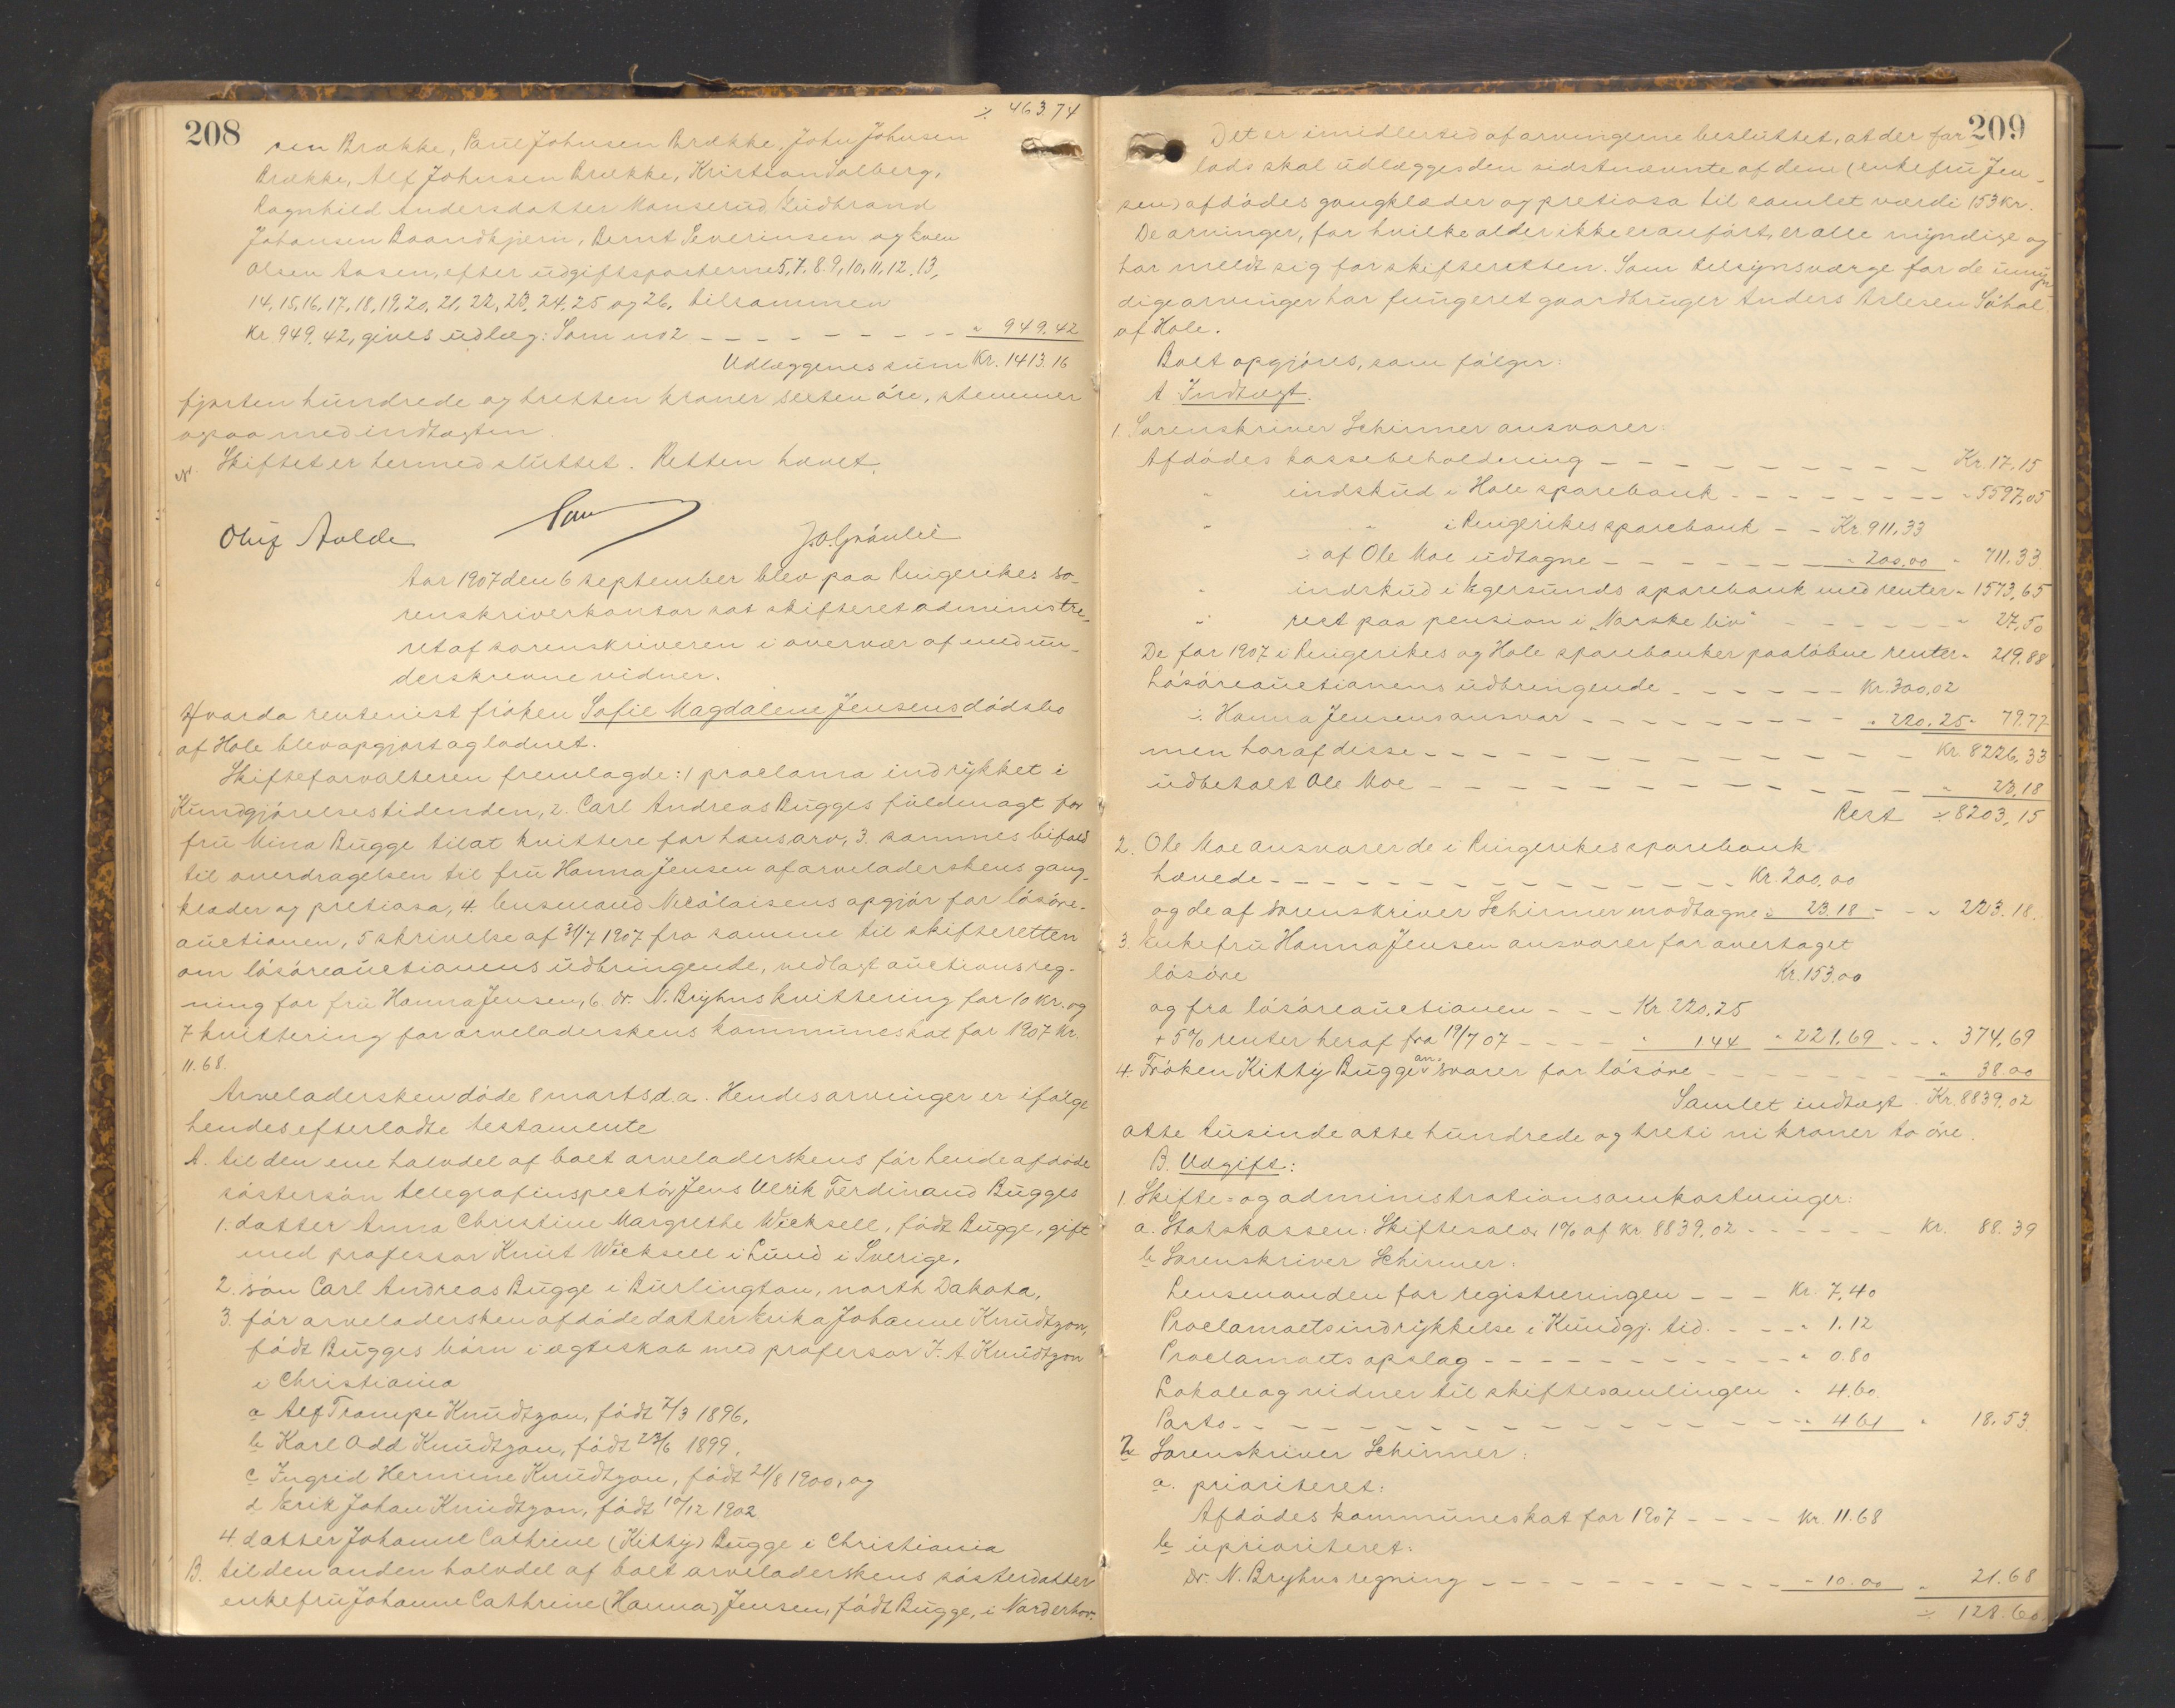 ÷ 463 74
208
sen Brække, Paul Johnsen Brække, John Johnsen
Brække, Alf Johnsen Brække, Kristian Solberg,
Ragnhild Andersdatter Manserud, Gudbrand
Johansen Baandkjern, Bernt Severinsen og Sven
Olsen Aasen, efter udgiftsposterne 5, 7, 8, 9, 10, 11, 12, 13,
14, 15, 16, 17, 18, 19, 20, 21, 22, 23, 24, 25 og 26, tilsammen
kr. 949.42, gives udlæg: Som no 2 - - - - - - - " 949.42
Udlæggenes sum Kr. 1413.16
fjorten hundrede og tretten kroner sexten øre, stemmer
ogsaa med indtægten.
Skiftet er hermed sluttet. Retten hævet.
Oluf Avlde
J. O. Grønlie
Aar 1907 den 6 september blev paa Ringerikes so-
renskriverkontor sat skifteret administre-
ret af sorenskriveren i overvær af medun-
derskrevne vidner.
Hvorda rentenist frøken Sofie Magdalene Jensens dødsbo
af Hole blev opgjort og lodnet.
Skifteforvalteren fremlagde: 1 proclama indrykket i
Kundgjørelsestidenden, 2. Carl Andreas Bugges fuldmagt for
fru Mina Bugge til at kvittere for hans arv, 3. sammes bifald
til overdragelsen til fru Hanna Jensen af arveladerskens gang-
klæder og pretiosa, 4. lensmand Nicolaisens opgjør for løsøre-
auctionen, 5 skrivelse af 31/7 1907 fra samme til skifteretten
om løsøreauctionens udbringende, vedlagt auctionsreg-
ning for fru Hanna Jensen, 6. dr. N. Bryhns kvittering for 10 kr. og
7 kvittering for arveladerskens kommuneskat for 1907 kr.
11.68.
Arveladersken døde 8 marts d.a. Hendes arvinger er ifølge
hendes efterladte testamente
A. til den ene halvdel af boet arveladerskens før hende afdøde
søstersøn telegrafinspectør Jens Ulrik Ferdinand Bugges
1. datter Anna Christine Margrethe Wicksell, født Bugge, gift
med professor Knut Wicksell i Lund i Sverige,
2. søn Carl Andreas Bugge i Burlington, north Dakota,
3. før arveladersken afdøde datter Erika Johanne Knudtzon,
født Bugges børn i ægteskab med professor J. A. Knudtzon
i Christiania
a Alf Trampe Knudtzon, født 7/3 1896,
b Karl Odd Knudtzon, født 23/6 1899,
c Ingrid Hermine Knudtzon, født 21/8 1900, og
d Erik Johan Knudtzon, født 10/12 1902
4 datter Johanne Cathrine (Kitty) Bugge i Christiania
B. til den anden halvdel af boet arveladerskens søsterdatter
enkefru Johanne Cathrine (Hanna) Jensen, født Bugge, i Norderhov.
209
Det er imidlertid af arvingerne besluttet, at der for
lods skal udlægges den sidstnævnte af dem (enkefru Jen-
sen) afdødes gangklæder og pretiosa til samlet værdi 153 kr.
De arvinger, for hvilke alder ikke er anført, er alle myndige og
har meldt sig for skifteretten. Som tilsynsværge for de umyn
dige arvinger har fungeret gaardbruger Anders Arlesen Søhol
af Hole.
Boet opgjøres, som følger:
A Indtægt.
1. Sorenskriver Schirmer ansvarer:
Afdødes kassebeholdning - - - - - - - - - Kr. 17,15
" indskud i Hole sparebank - - - - - - - - " 5597,05
" " i Ringerikes sparebank - - Kr. 911.33
÷ af Ole Moe udtagne - - - - - - " 200.00 " 711.33
" indskud i Egersunds sparebank med renter " 1573,65
" rest paa pension i "Norske liv" - - - - - - " 27,50
De for 1907 i Ringerikes og Hole sparebanker paaløbne renter " 219.88
Løsøreauctionens udbringende - - - - - Kr. 300,02
÷ Hanna Jensens ansvar - - - - - - - - " 220.25 " 79.77
Kr. 8226,33
men har af disse - - - - - - - - - - - -
udbetalt Ole Moe - - - - - - - - - - - " 23,18
Rest ÷ 8203,15
2. Ole Moe ansvarer de i Ringerikes sparebank
hævede - - - - - - - - - - - - Kr. 200,00
og de af sorenskriver Schirmer modtagne " 23.18 - - " 223.18.
3. Enkefru Hanna Jensen ansvarer for overtaget
løsøre Kr. 153.00
og fra løsøreauctionen - - - Kr 220,25
+ 5% renter heraf fra 19/7 07 - - - - " 1 44 " 221.69 - - " 374,69
4. Frøken Kitty Bugge ansvarer for løsøre - - - - - - - - " 38.00
Samlet indtægt Kr. 8839.02
otte tusinde otte hundrede og treti ni kroner to øre.
B. Udgift:
1. Skifte- og administrationsomkostninger:
a. Statskassen: Skiftesalær 1% af kr. 8839.02 - - - - - kr. 88.39
b Sorenskriver Schirmer:
Lensmanden for registreringen - - - Kr. 7,40
Proclamaets indrykkelse i Kundgj. tid. - - - " 1.12
Proclamaets opslag - - - - - - - - - - " 0.80
Lokale og vidner til skiftesamlingen " 4.60
Porto - - - - - - - - - - - - - - " 4 61 " 18.53
2 Sorenskriver Schirmer:
a. prioriteret:
Afdødes kommuneskat for 1907 - - - - kr. 11.68
b uprioriteret:
Dr. N. Bryhns regning - - - - - - - - - " 10.00 " 21.68
÷ 128.60